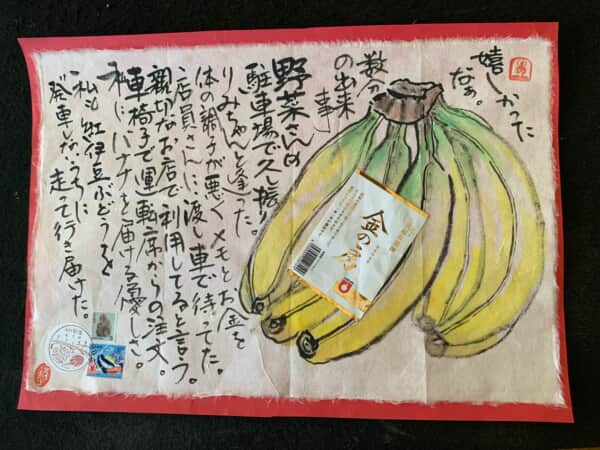 嬉しかった
なぁ。
数分
の出来
事
野菜さんの
駐車場で久し振り。
りみちゃんと逢った。
体の調子が悪く メモとお金を
店員さんに渡し車で待ってた。
親切なお店で利用してると言う。
車椅子で運転席からの注文。
袖にバナナを届ける優しさ。
私も紅伊豆ぶどうを
発車しないうちに
走って行き届けた。
金の房